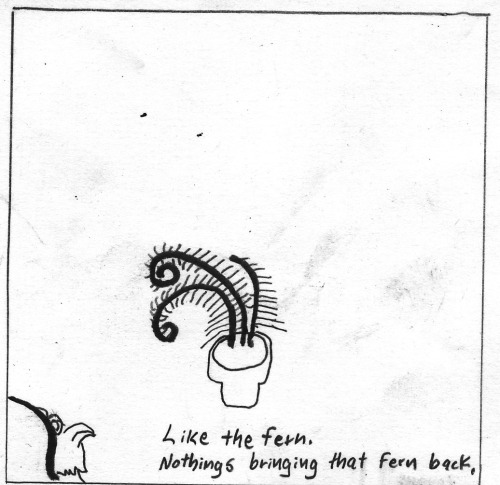 Like the fern.
Nothings bringing that fern back.